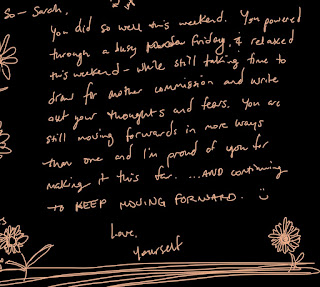 So — Sarah,
You did so well this weekend. You powered
through a busy Friday, & relaxed
this weekend - while still taking time to
draw for another commission and write
out your thoughts and fears. You are
still moving forwards in more ways
than one and I'm proud of you for
making it this far. ...AND continuing
to KEEP MOVING FORWARD. :)
Love,
Yourself